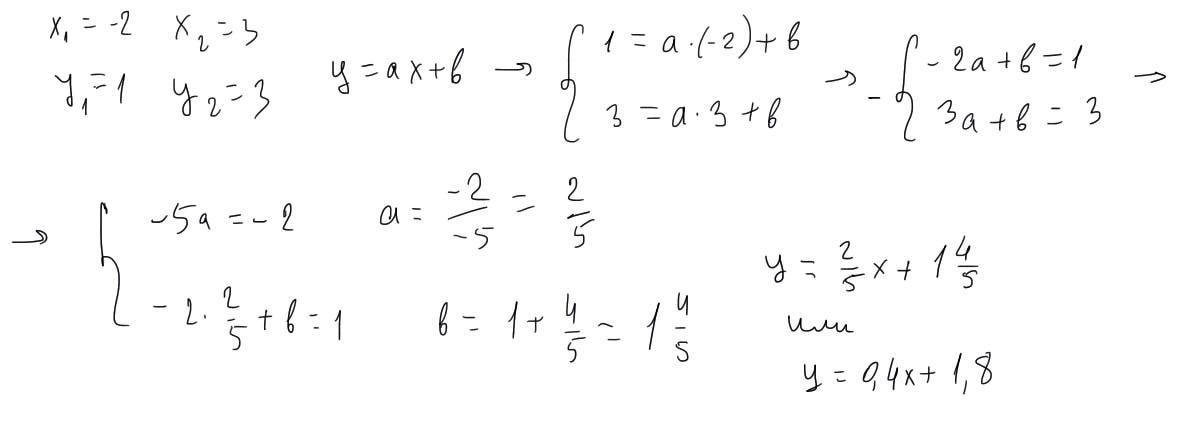 x₁ = -2 x₂ = 3
y₁ = 1 y₂ = 3
y = ax + в → { 1 = a · (-2) + в
3 = a · 3 + в
→ - { - 2a + в = 1
3a + в = 3 →
→ { -5a = - 2 a = -2/-5 = 2/5
- 2 · 2/5 + в = 1 в = 1 + 4/5 = 1 4/5
y = 2/5 x + 1 4/5
или
y = 0,4x + 1,8